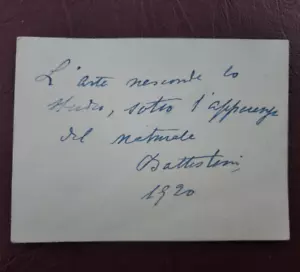 L'arte nasconde lo
studio, sotto l'apparenza
del naturale
Battistini
1920